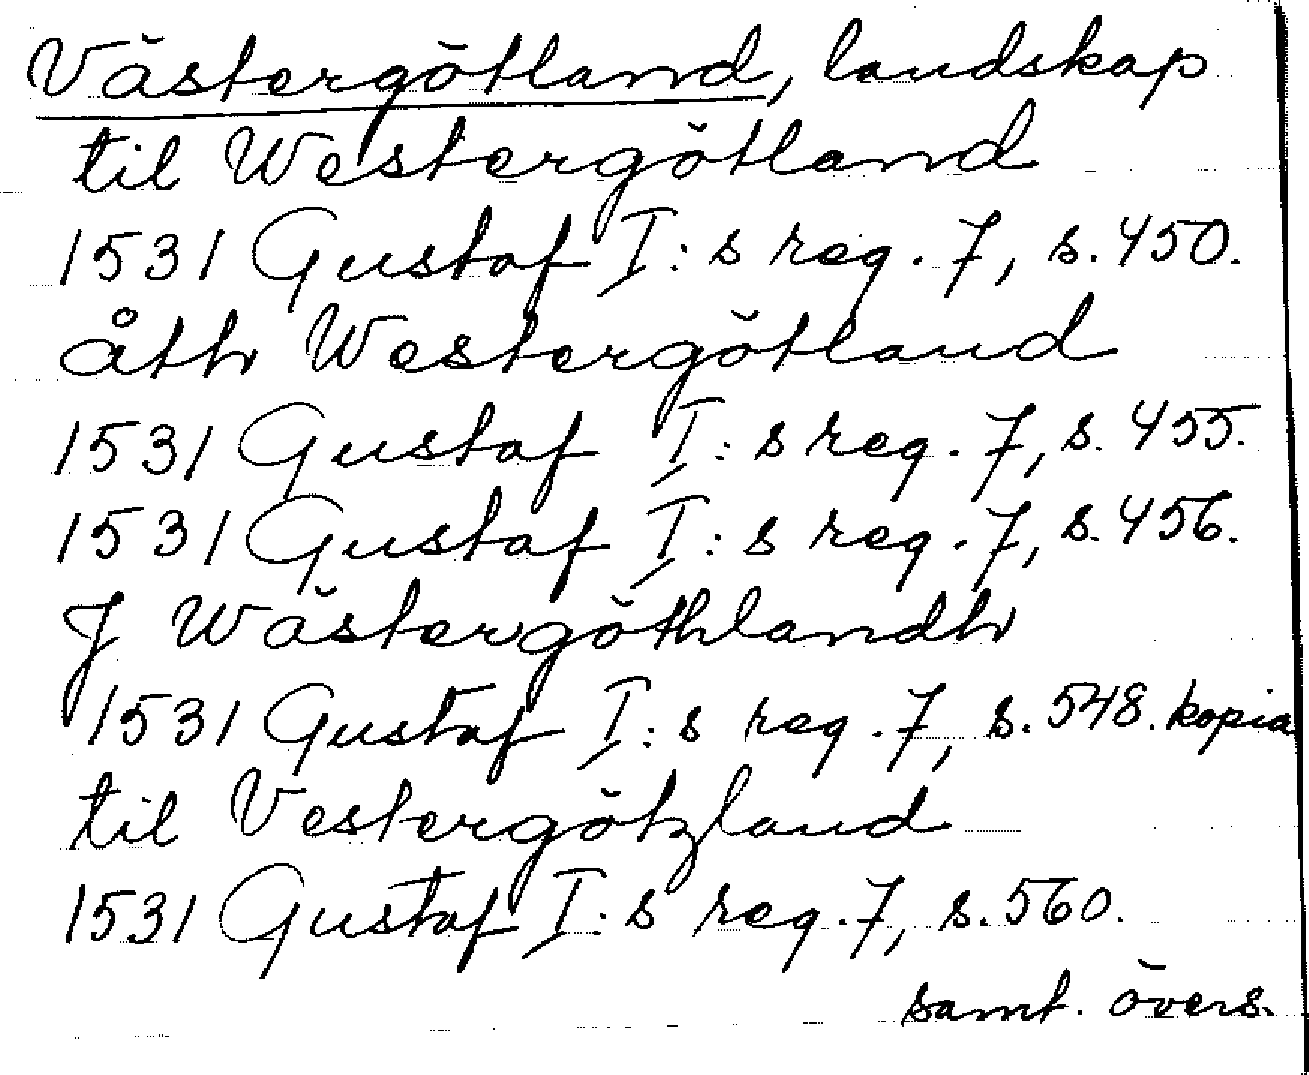 Västergötland, landskap
til Westergötland
1531 Gustaf I:s reg. 7, s. 450.
åth Westergötland
1531 Gustaf I:s reg. 7, s. 455.
1531 Gustaf I:s reg. 7, s. 456.
J Wästergöthlandh
1531 Gustaf I:s reg. 7, s. 548. kopia
til Vestergötzland
1531 Gustaf I:s reg. 7, s. 560.
samt. övers.